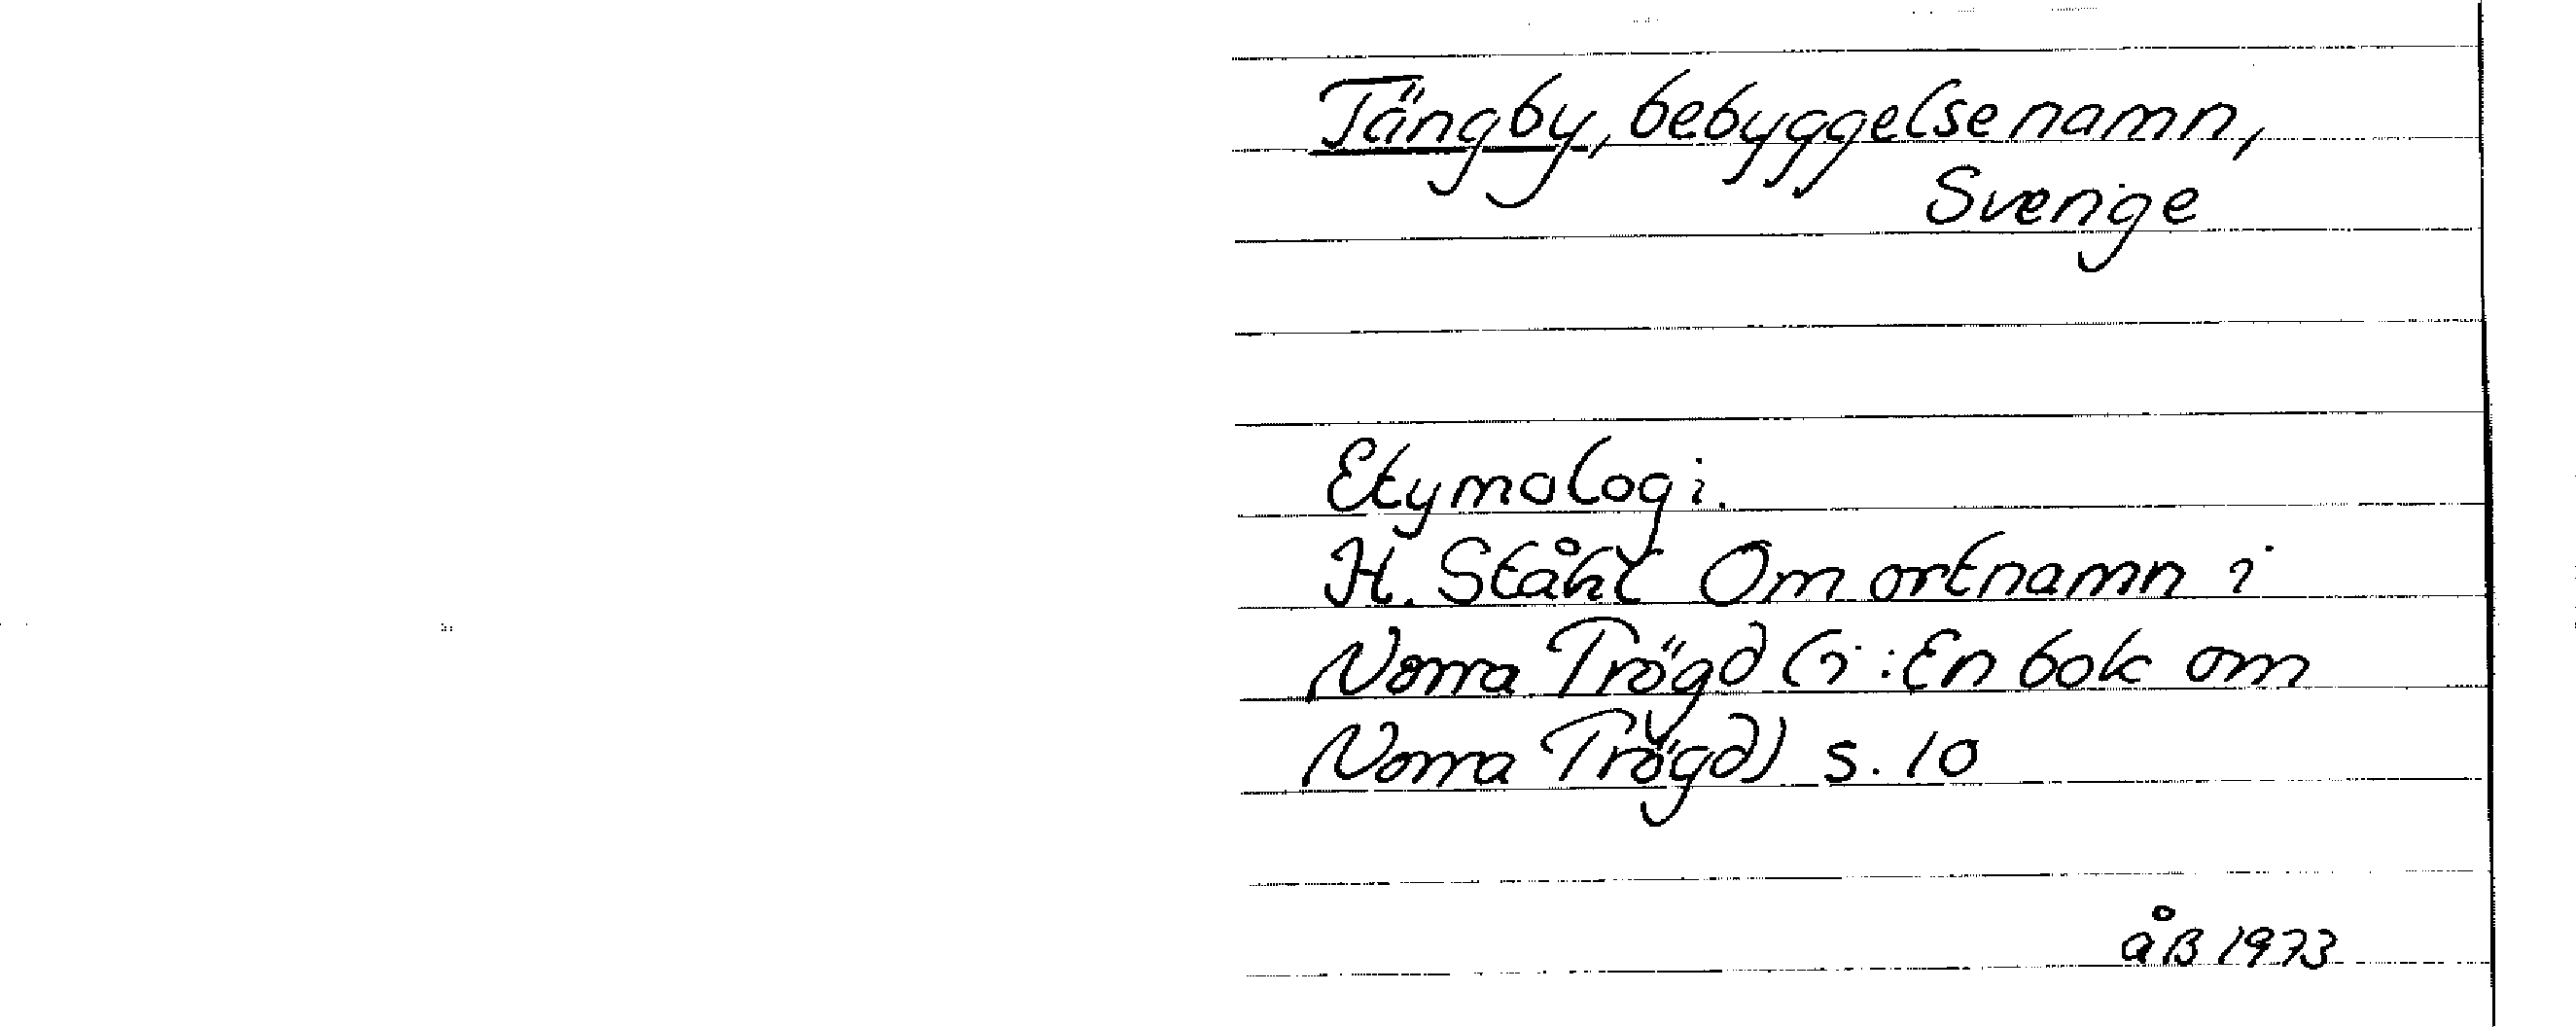 Tängby, bebyggelsenamn,
Sverige
Etymologi.
H. Ståhl Om ortnamn i
Norra Trögd (i: En bok om
Norra Trögd) s. 10
åB 1973